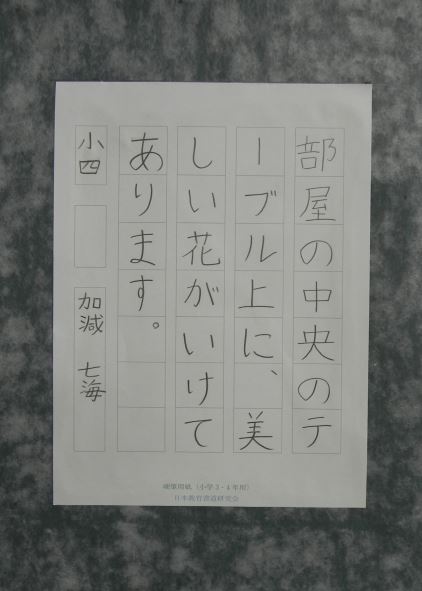 部屋の中央のテ
ーブル上に、美
しい花がいけて
あります。
小四
加減 七海
硬筆用紙（小学3・4年用）
日本教育書道研究会